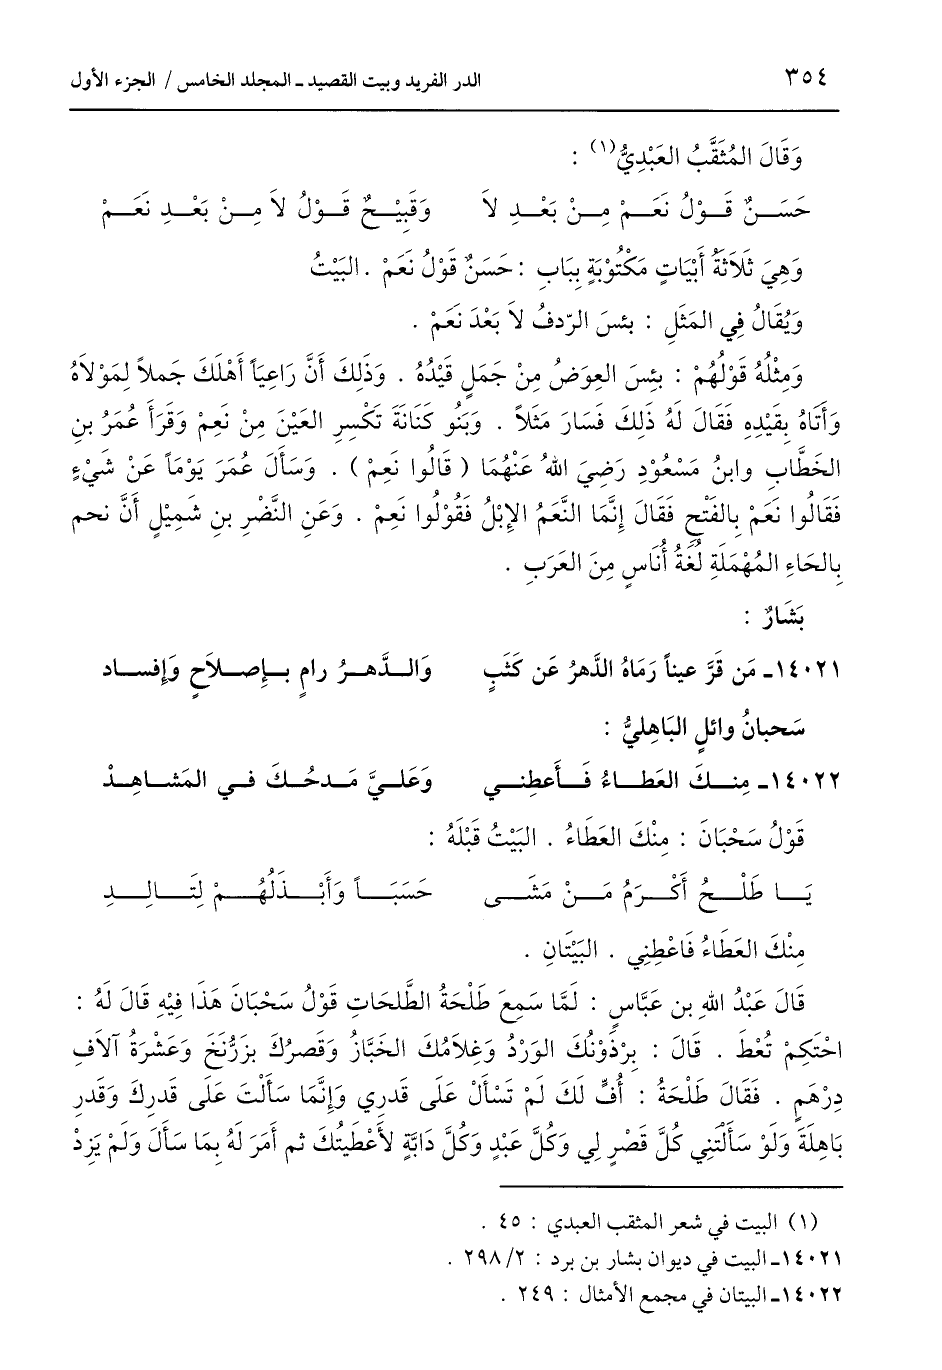 ٣٥٤ الدر الفريد وبيت القصيد ـ المجلد الخامس / الجزء الأول
وَقَالَ المُثَقَّبُ العَبْدِيُّ(١) :
حَسَــنٌ قَــوْلُ نَعَــمْ مِــنْ بَعْــدِ لاَ وَقَبِيْــحٌ قَــوْلُ لاَ مِــنْ بَعْــدِ نَعَــمْ
وَهِيَ ثَلاَثَةُ أَبْيَاتٍ مَكْتُوْبَةٍ بِبَابِ : حَسَنٌ قَوْلُ نَعَمْ . البَيْتُ
وَيُقَالُ فِي المَثَلِ : بئسَ الرّدفُ لاَ بَعْدَ نَعَمْ .
وَمِثْلُهُ قَوْلُهُمْ : بِئسَ العِوَضُ مِنْ جَمَلٍ قَيْدُهُ . وَذَلِكَ أَنَّ رَاعِيَاً أَهْلَكَ جَملاً لِمَوْلاَهُ
وَأَتَاهُ بِقَيْدِهِ فَقَالَ لَهُ ذَلِكَ فَسَارَ مَثَلاً . وَبَنُو كَنَانَةَ تَكْسِرِ العَيْنَ مِنْ نَعِمْ وَقَرَأَ عُمَرُ بنِ
الخَطَّابِ وابنُ مَسْعُوْدٍ رَضِيَ اللهُ عَنْهُمَا ( قَالُوا نَعِمْ ) . وَسَأَلَ عُمَرَ يَوْمَاً عَنْ شَيْءٍ
فَقَالُوا نَعَمْ بِالفَتْحِ فَقَالَ إِنَّمَا النَّعَمُ الإِبْلُ فَقُوْلُوا نَعِمْ . وَعَنِ النَّضْرِ بنِ شَمِيْلٍ أَنَّ نحم
بِالحَاءِ المُهْمَلَةِ لُغَةُ أُنَاسٍ مِنَ العَرَبِ .
بَشَارٌ :
١٤٠٢١ـ مَن قَرَّ عيناً رَمَاهُ الدَّهرُ عَن كَثَبٍ وَالــدَّهــرُ رامٍ بــإِصــلاَحٍ وَإِفســاد
سَحبانُ وائلٍ البَاهِليُّ :
١٤٠٢٢ـ مِنــكَ العَطــاءُ فَــأَعطِنــي وَعَلــيَّ مَــدحُــكَ فــي المَشــاهِــدْ
قَوْلُ سَحْبَانَ : مِنْكَ العَطَاءُ . البَيْتُ قَبْلَهُ :
يَــا طَلْــحُ أَكْــرَمُ مَــنْ مَشَــى حَسَبَــاً وَأَبْــذَلُهُــمْ لِتَــالِــدِ
مِنْكَ العَطَاءُ فَاعْطِنِي . البَيْتَانِ .
قَالَ عَبْدُ اللهِ بن عَبَّاسٍ : لَمَّا سَمِعَ طَلْحَةُ الطَّلحَاتِ قَوْلُ سَحْبَانَ هَذَا فِيْهِ قَالَ لَهُ :
احْتَكِمْ تُعْطَ . قَالَ : بِرْذَوْنُكَ الوَرْدُ وَغِلاَمُكَ الخَبَّازُ وَقَصرُكَ بِزَرُّنَخَ وَعَشْرَةُ آلاَفِ
دِرْهَمٍ . فَقَالَ طَلْحَةُ : أُفٍّ لَكَ لَمْ تَسْأَلْ عَلَى قَدرِي وَإِنَّمَا سَأَلْتَ عَلَى قَدرِكَ وَقَدرِ
بَاهِلَةَ وَلَوْ سَأَلْتَنِي كُلَّ قَصْرٍ لِي وَكُلَّ عَبْدٍ وَكُلَّ دَابَّةٍ لأَعْطَيتُكَ ثم أَمَرَ لَهُ بِمَا سَأَلَ وَلَمْ يَزِدْ
(١) البيت في شعر المثقب العبدي : ٤٥ .
١٤٠٢١ـ البيت في ديوان بشار بن برد : ٢/ ٢٩٨ .
١٤٠٢٢ـ البيتان في مجمع الأمثال : ٢٤٩ .